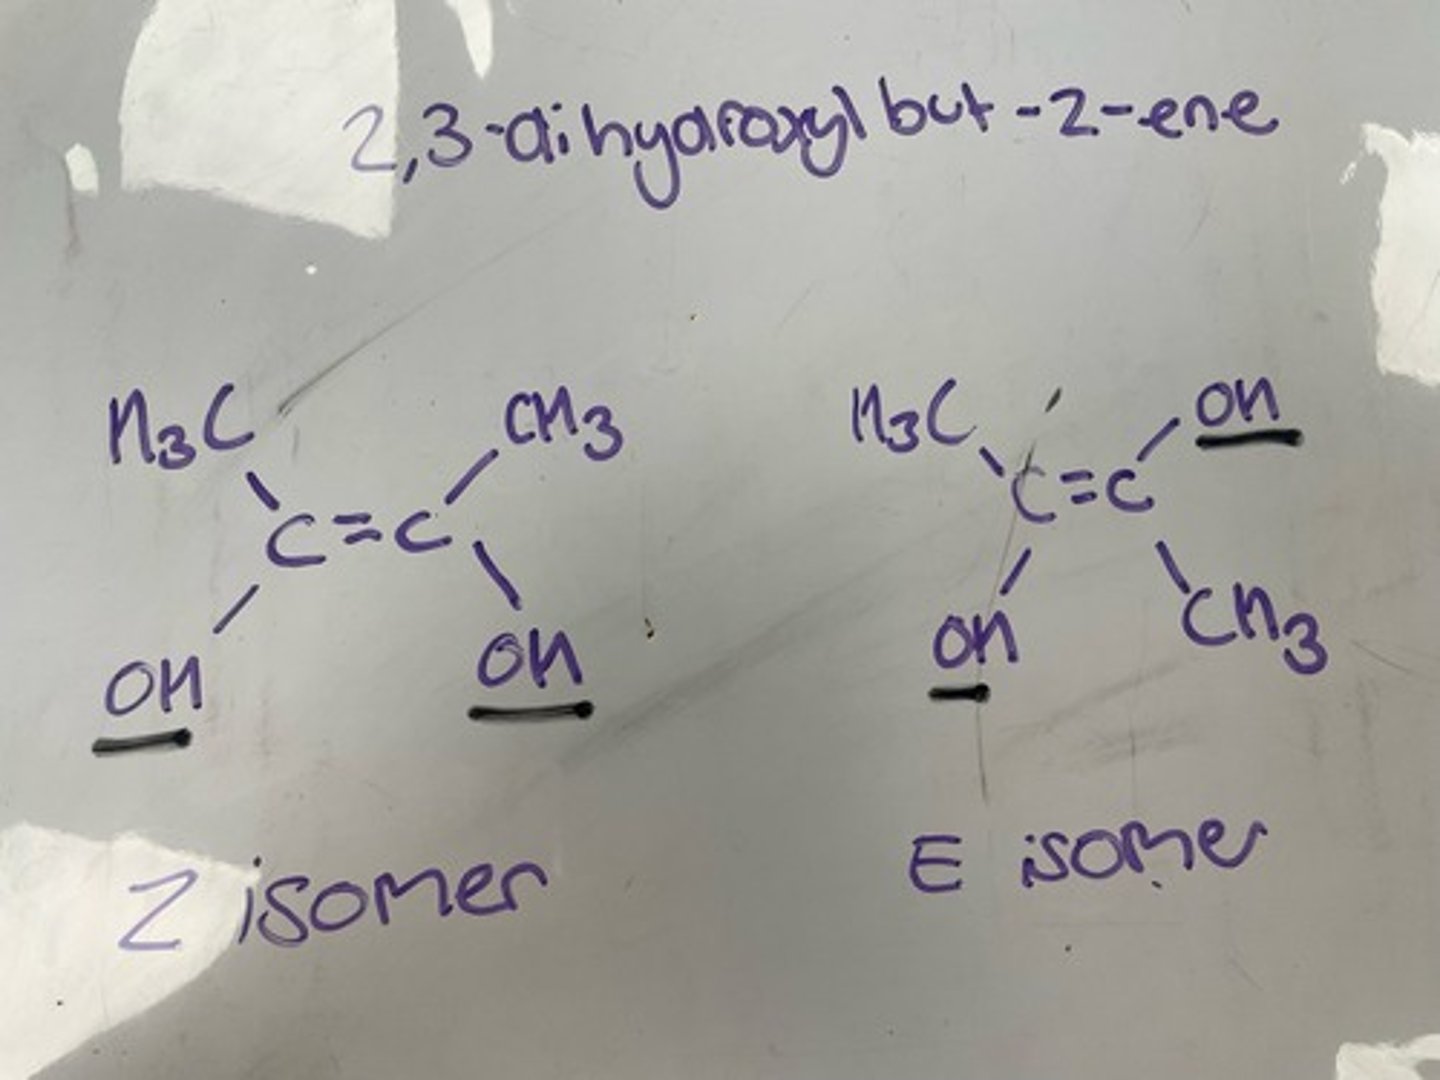 2,3-dihydroxyl but-2-ene
H3C CH3
C=C
OH OH
H3C OH
C=C
OH CH3
Z isomer
E isomer